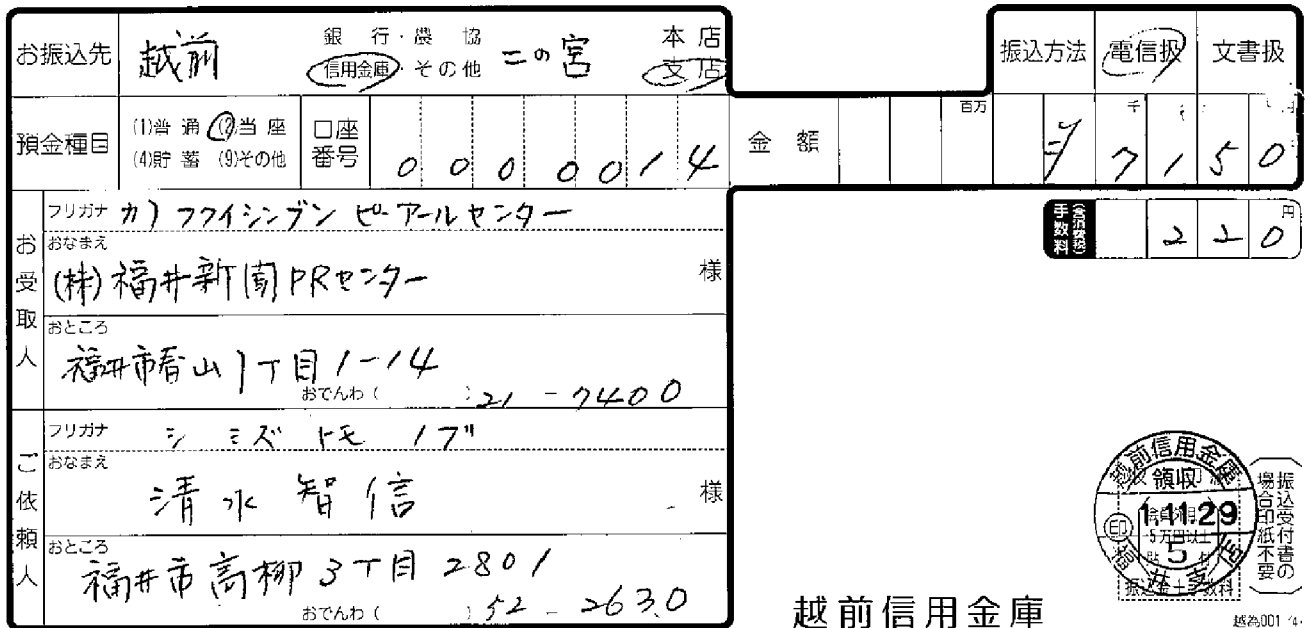 お振込先 越前 銀行・農協 信用金庫・その他 二の宮 本店 支店
振込方法 電信扱 文書扱
預金種目 (1)普通 (2)当座 (4)貯蓄 (9)その他 口座番号 0000014
金額 百万 千 円 ¥7150
手数料 (含消費税) 220円
お受取人
フリガナ カ)フクイシンブン ピーアールセンター
おなまえ
(株)福井新聞PRセンター 様
おところ
福井市春山1丁目1-14
おでんわ( ) 21-7400
ご依頼人
フリガナ シミズ トモノブ
おなまえ
清水智信 様
おところ
福井市高柳3丁目2801
おでんわ( ) 52-2630
越前信用金庫
領収
1.11.29
5
福井支店
印
振込受付書の場合印紙不要
越前信用金庫
越為001